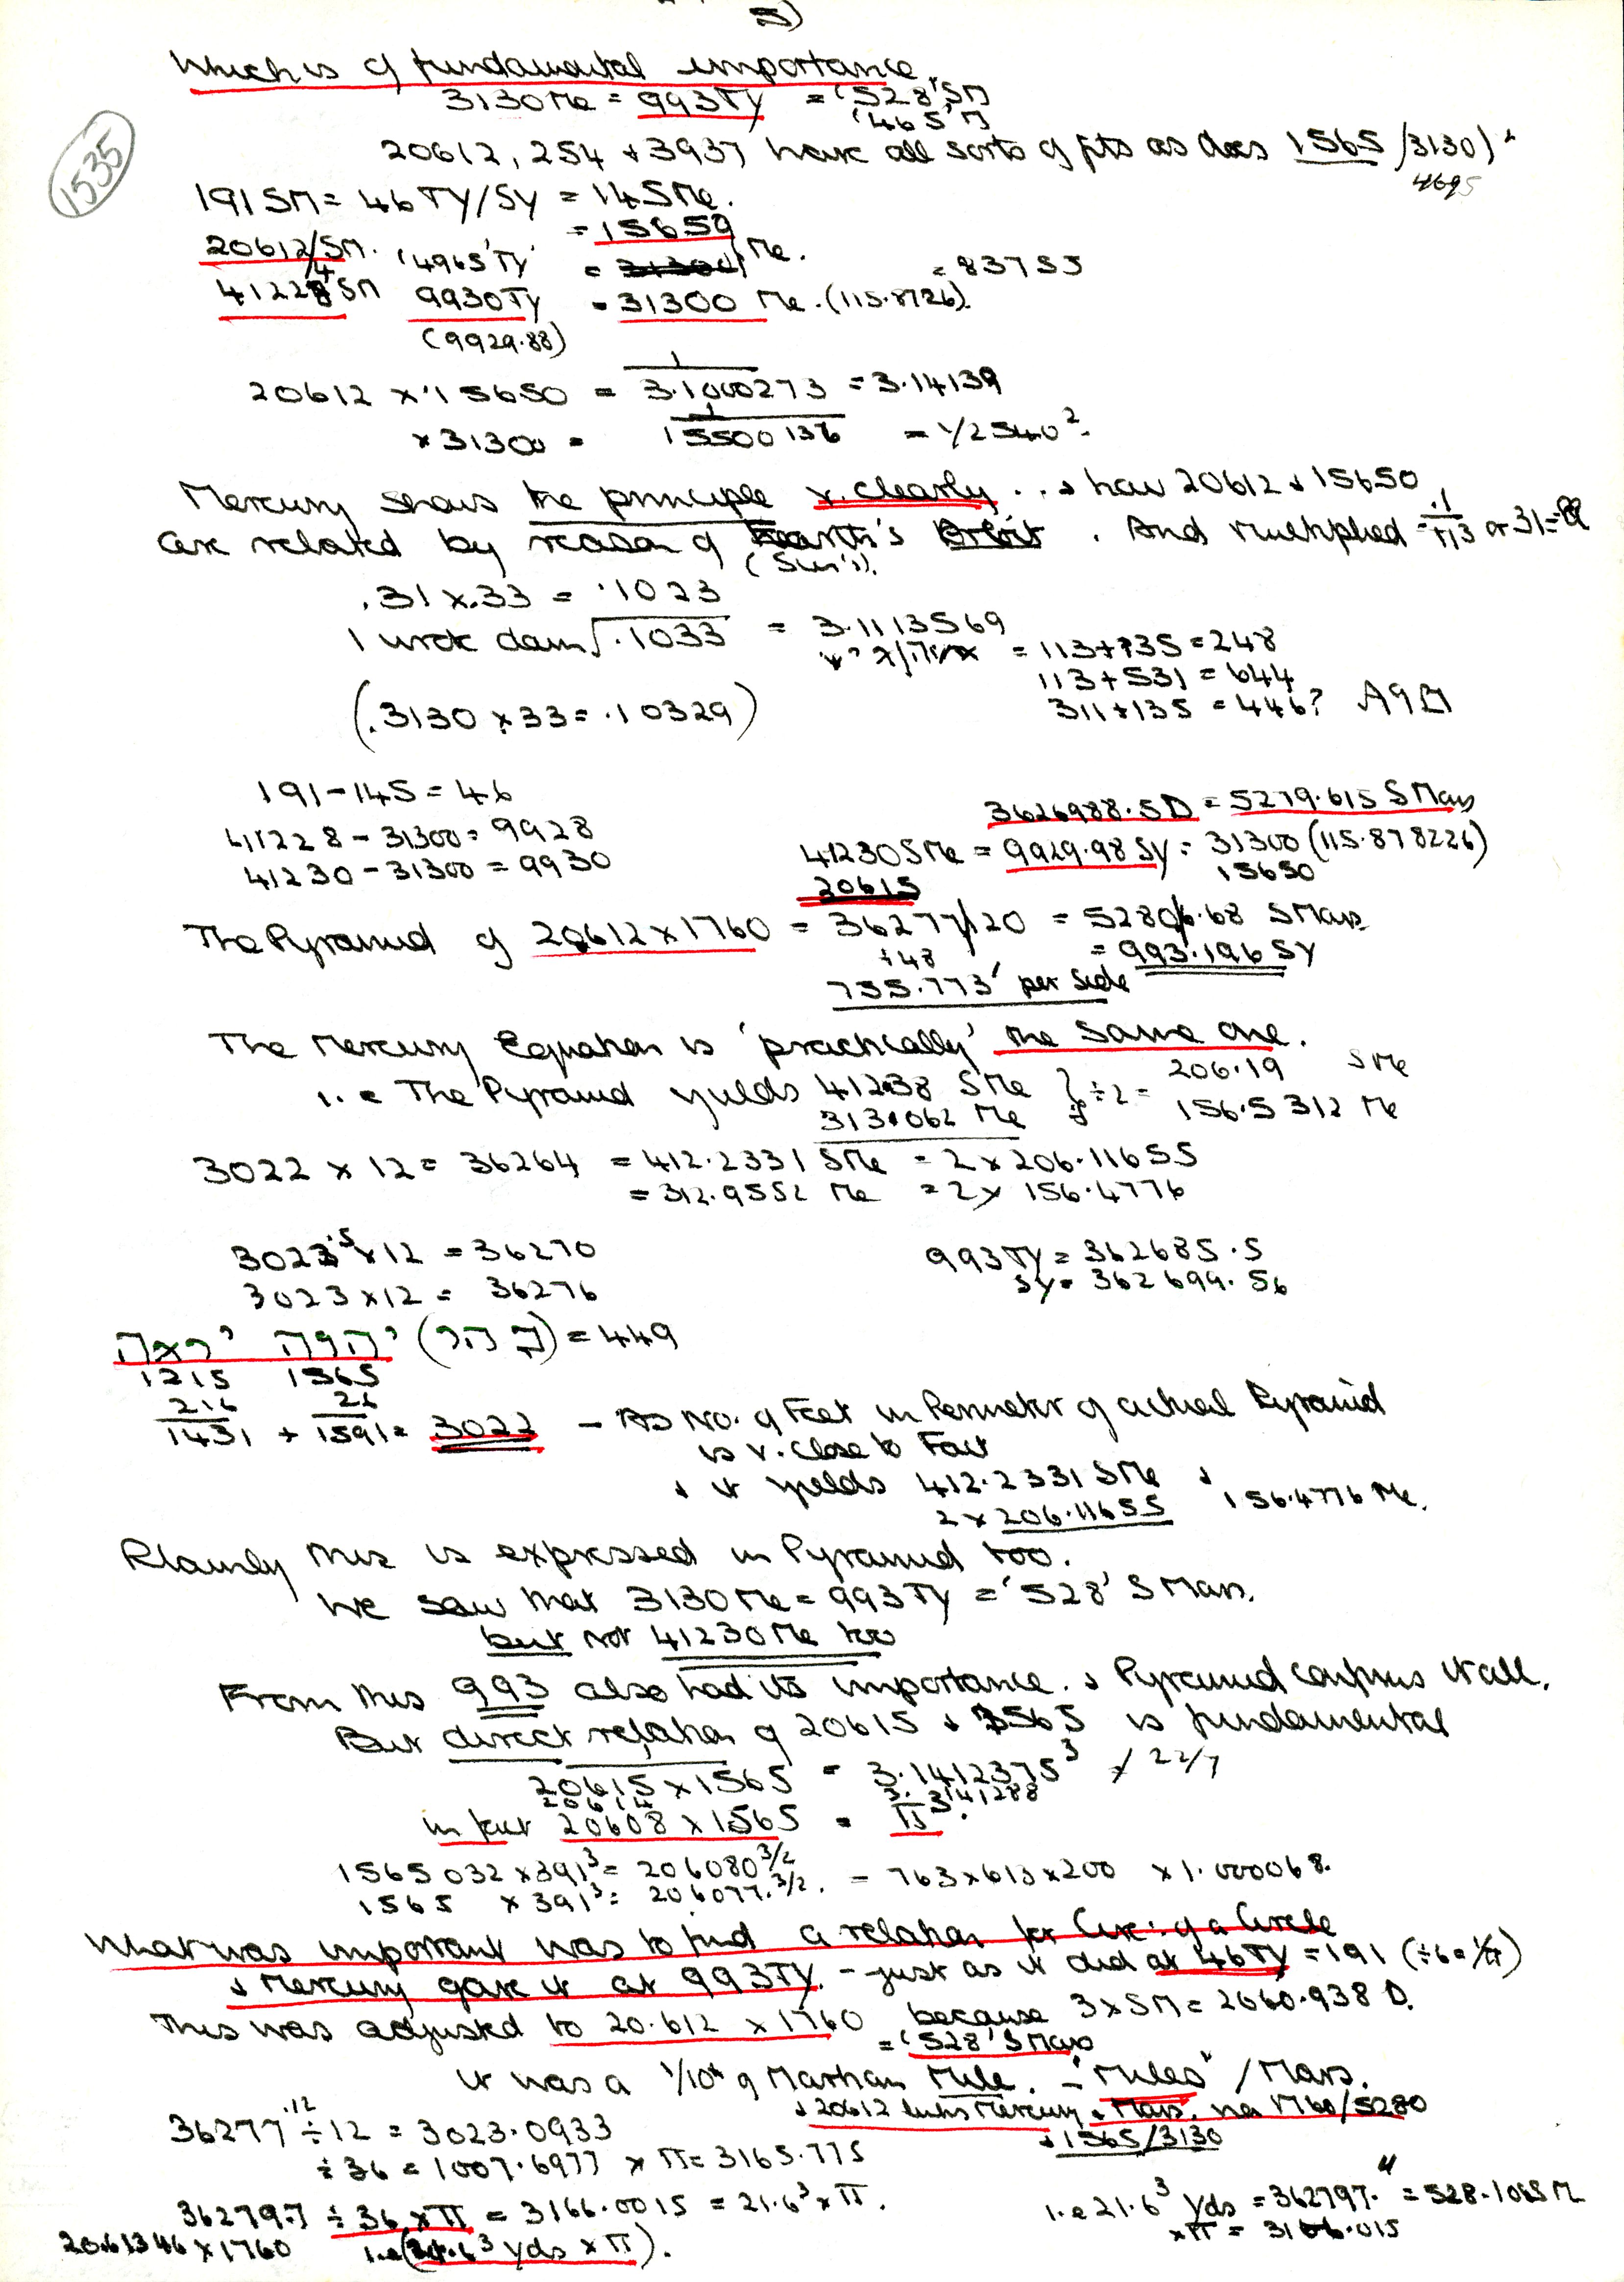 5)
Which is of fundamental importance.
3130 Me = 993 TY = '528' SM
'465' M
1535
20612, 254 + 3937 have all sorts of fits as does 1565/3130)
4695
191 SM = 46 TY/SY = 145 Me.
= 15650
20612/SM. '4965' TY = 31300 Me. = 83755
41228 SM 9930 TY = 31300 Me. (115.8726).
(9929.88)
20612 × 15650 = 1/3.1000273 = 3.14139
× 31300 = 1/15500136 = 1/2540².
Mercury shows the principle v. clearly . . + how 20612 + 15650
are related by reason of Earth's Orbit . And multiplied
(Sun's).
.31 × .33 = .1023
I wrote down √.1033 = 3.1113569
= 113 + 135 = 248
113 + 531 = 644
(.3130 × 33 = .10329) 311 + 135 = 446?
191 - 145 = 46
3626988.5 D = 5279.615 S Mars
41228 - 31300 = 9928
41230 SMe = 9929.98 SY = 31300 (115.878226)
41230 - 31300 = 9930
20615 15650
The Pyramid of 20612 × 1760 = 36277/120 = 5280.68 S Mars.
÷ 48 = 993.196 SY
755.773' per side
The Mercury Equation is 'practically' the same one.
i.e The Pyramid yields 41238 SMe } ÷ 2 = 206.19 SMe
313.062 Me 156.5312 Me
3022 × 12 = 36264 = 412.2331 SMe = 2 × 206.11655
= 312.9552 Me = 2 × 156.4776
3023.5 × 12 = 36270 993 TY = 362685.5
3023 × 12 = 36276 SY = 362699.56
יראה יהוה = 449
1215 1565
216 26
1431 + 1591 = 3022 - As No. of Feet in Perimeter of actual Pyramid
is v. close to Fact
+ it yields 412.2331 SMe + 156.4776 Me.
2 × 206.11655
Plainly this is expressed in Pyramid too.
We saw that 3130 Me = 993 TY = '528' S Mars.
but not 41230 Me too
From this 993 also had its importance. + Pyramid confirms it all.
But direct relation of 20615 + 1565 is fundamental
20615 × 1565 = 3.1412375³ / 22/7
20614 3.141288
in fact 20608 × 1565 = π³.
1565032 × 391³ = 206080^3/2 = 763 × 613 × 200 × 1.000068.
1565 × 391³ = 206077.^3/2.
What was important was to find a relation for Circ. of a Circle
+ Mercury gave it at 993 TY. - just as it did at 46 TY = 191 (÷ 6 = 1/π)
This was adjusted to 20.612 × 1760 because 3 × SM = 2060.938 D.
= '528' S Mars
it was a 1/10th of Martian Mile. - "Miles" / Mars.
+ 20612 links Mercury + Mars. via 1760/5280
+ 1565/3130
36277.12 ÷ 12 = 3023.0933
÷ 36 = 1007.6977 × π = 3165.775
36279.7 ÷ 36 × π = 3166.0015 = 21.6³ × π.
i.e 21.6³ yds = 362797." = 528.1065 M
× π = 3166.015
20.61346 × 1760 i.e (21.6³ yds × π).